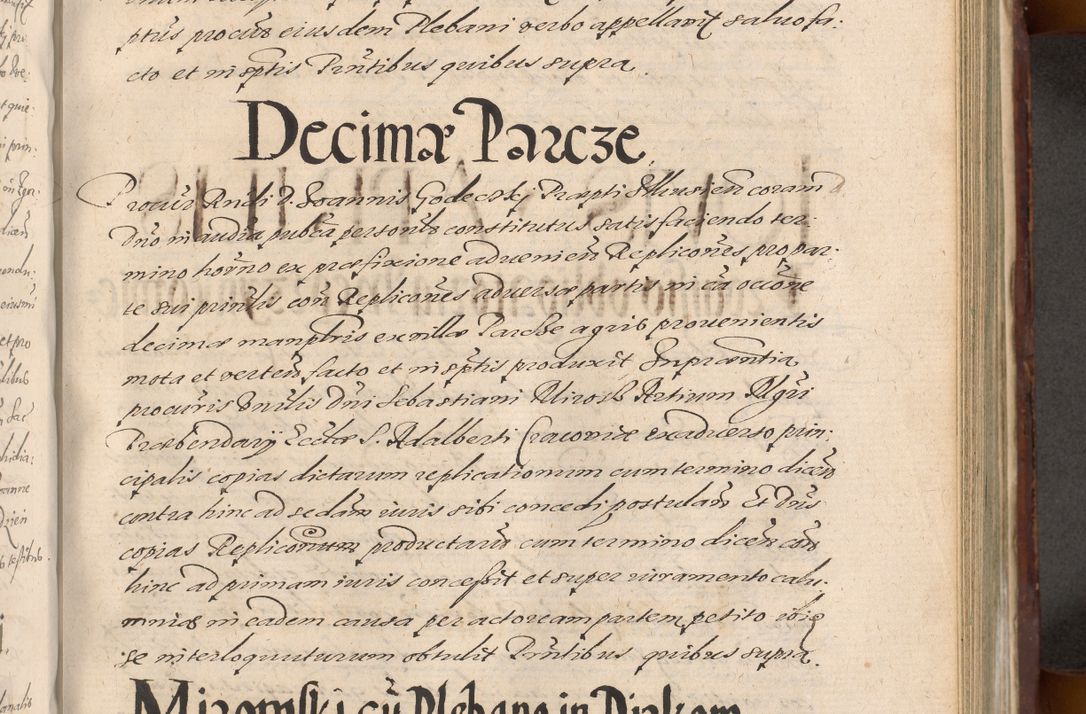 ptus procur eiusdem Plebani verbo appellavit salvo fa-
cto et in sptis Pntibus quibus supra
Decimæ Parcze
Procur Rndi D. Joannis Godeczkj Præpti Illkusien coram
Dno in audia pubca personlr constitutus satisfaciendo ter-
mino horno ex præfixione advenien Replicones pro par-
te sui prinlis con Replicones adversæ partis in ca occone
decimæ manplris ex villæ Parcze agris provenientis
mota et verten facto et in sptis produxit In præsentia
procuris Dni Sebastiani Mirosz Artium Mgri
Præbendarij Eccæ S. Adalberti Cracoviæ ex adverso prin-
cipalis copias dictarum replicationum cum termino dicen
contra hinc ad sedam iuris sibi concedi postulan Et Dnus
copias Repliconum productarum cum termino dicen con
hinc ad primam iuris concessit et super iuramento calu-
mniæ in eadem causa per actoream partem petito ibi
se interloquuturum obtulit Pntibus quibus supra.
Mirowski cu Plebano in